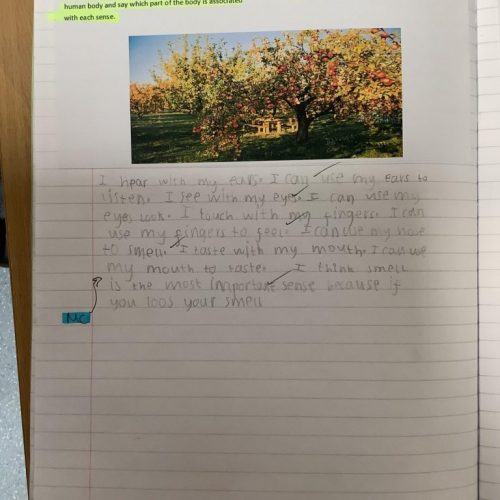 human body and say which part of the body is associated
with each sense.
I hear with my ears. I can use my ears to
listen. I see with my eyes. I can use my
eyes look. I touch with my fingers. I can
use my fingers to feel. I can use my nose
to smell. I taste with my mouth. I can use
my mouth to taste. I think smell
is the most important sense because if
you loos your smell
MC